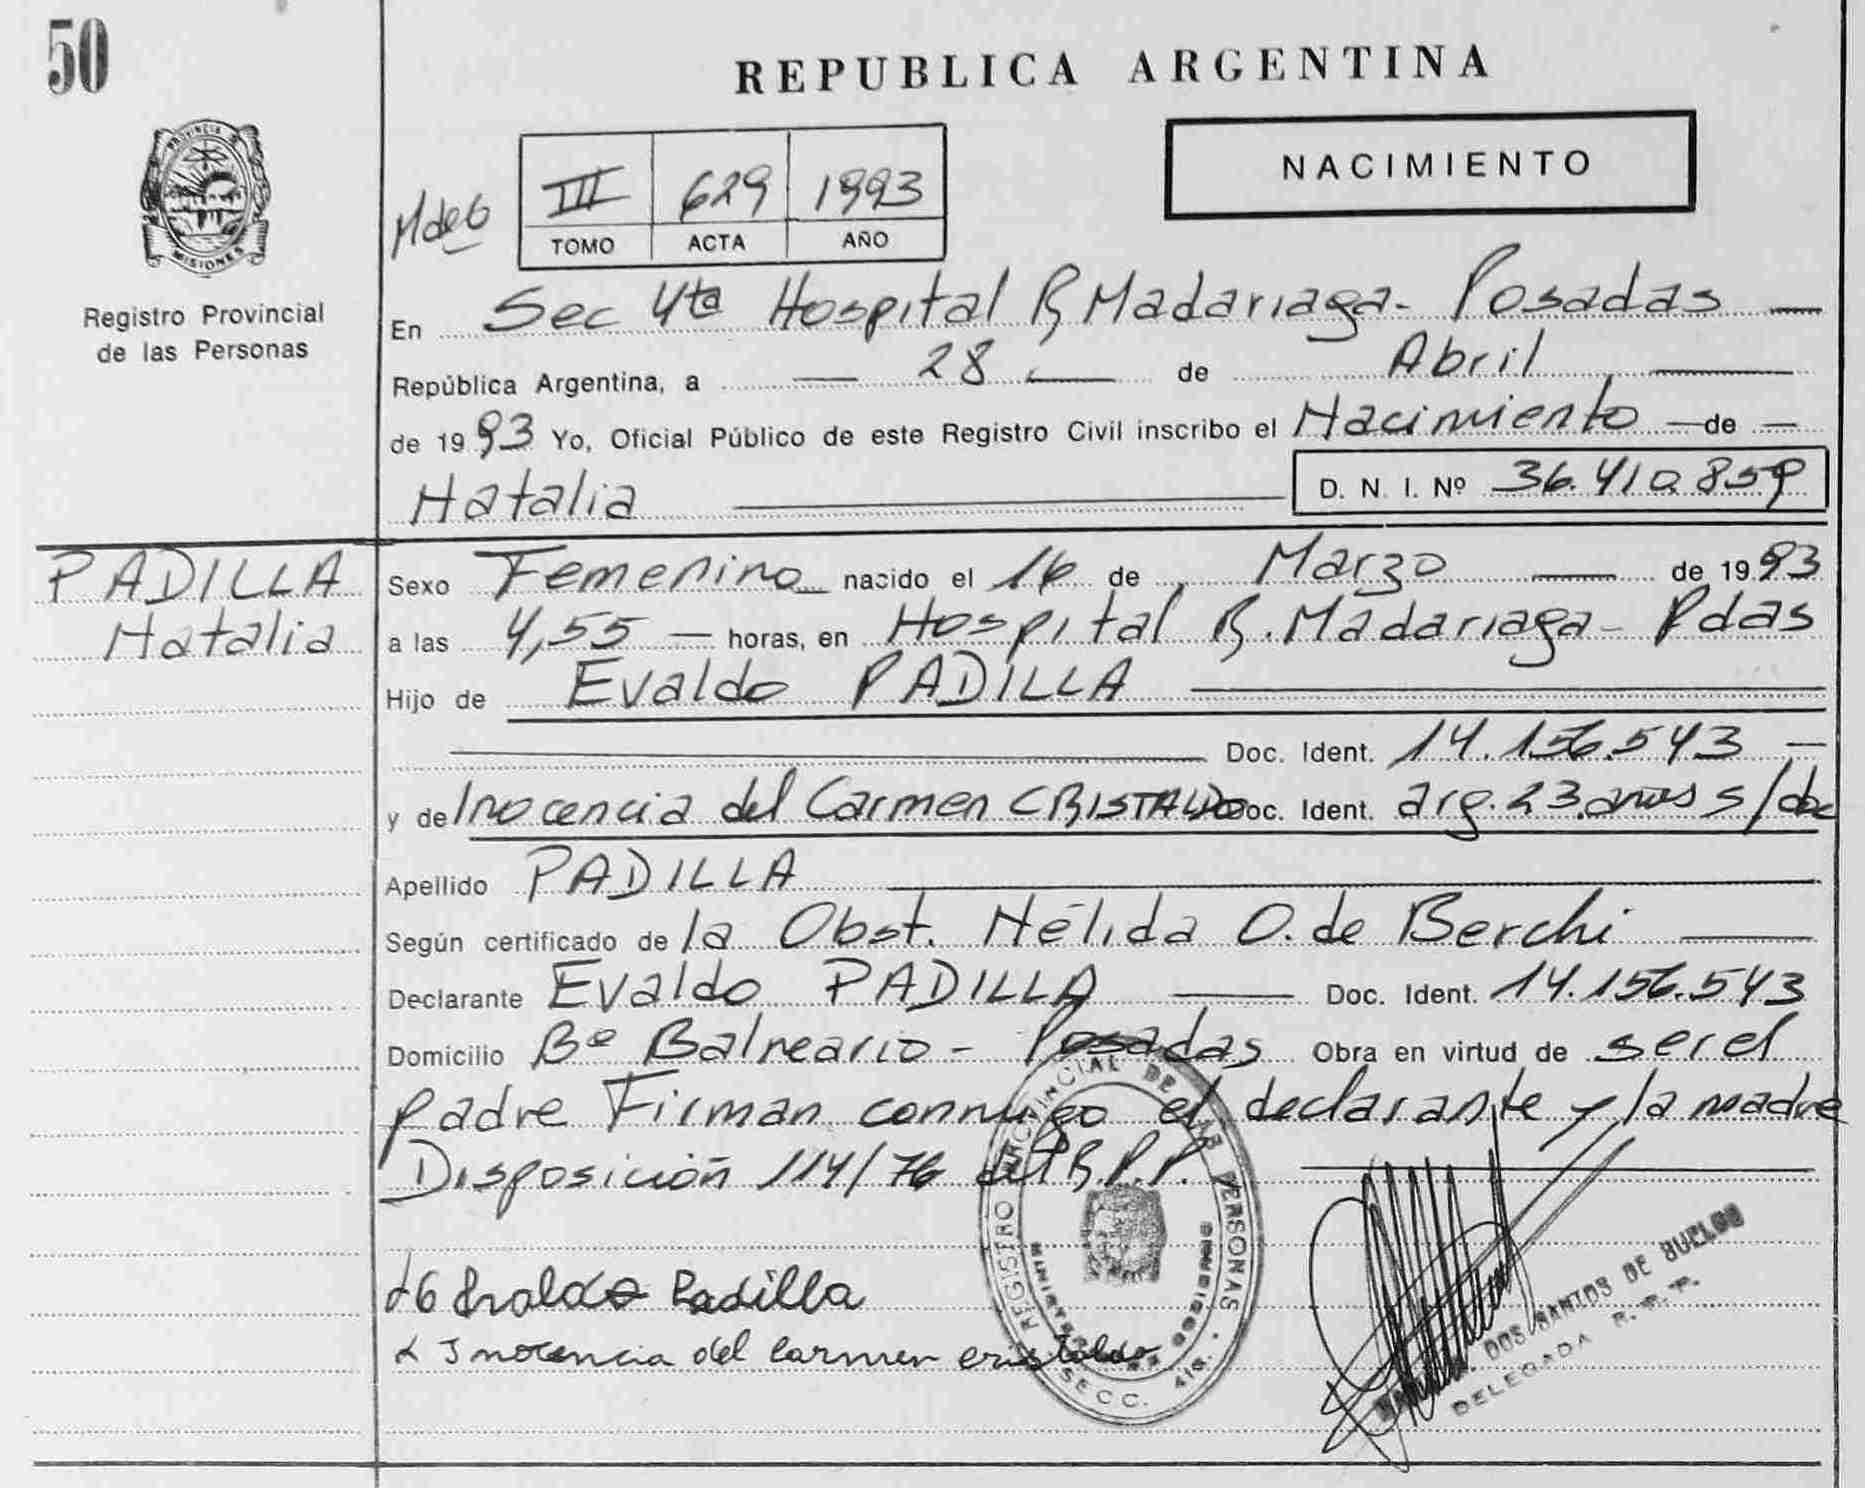 50
REPUBLICA ARGENTINA
PROVINCIA DE
MISIONES
Registro Provincial
de las Personas
NACIMIENTO
MdeG
III 629 1993
TOMO ACTA AÑO
En Sec 4ta Hospital R. Madariaga - Posadas —
República Argentina, a — 28 . — de Abril —
de 1993 Yo, Oficial Público de este Registro Civil inscribo el Nacimiento — de —
Natalia — D. N. I. Nº 36.410.859
PADILLA
Natalia
Sexo Femenino nacido el 16 de Marzo — de 1993
a las 4,55 — horas, en Hospital R. Madariaga - Pdas
Hijo de Evaldo PADILLA —
— Doc. Ident. 14.156.543 —
y de Inocencia del Carmen CRISTALDO Doc. Ident. arg. 23 años s/doc
Apellido PADILLA —
Según certificado de la Obst. Nélida O. de Berchi —
Declarante Evaldo PADILLA — Doc. Ident. 14.156.543
Domicilio Bº Balneario - Posadas Obra en virtud de ser el
padre Firman conmigo el declarante y la madre
Disposición 114/76 del R.P.P. —
Evaldo Padilla
Inocencia del Carmen cristaldo
REGISTRO PROVINCIAL DE LAS PERSONAS
MINISTERIO DE GOBIERNO
SECC. 4ta.
DOS SANTOS DE SUELDO
DELEGADA R. P. P.